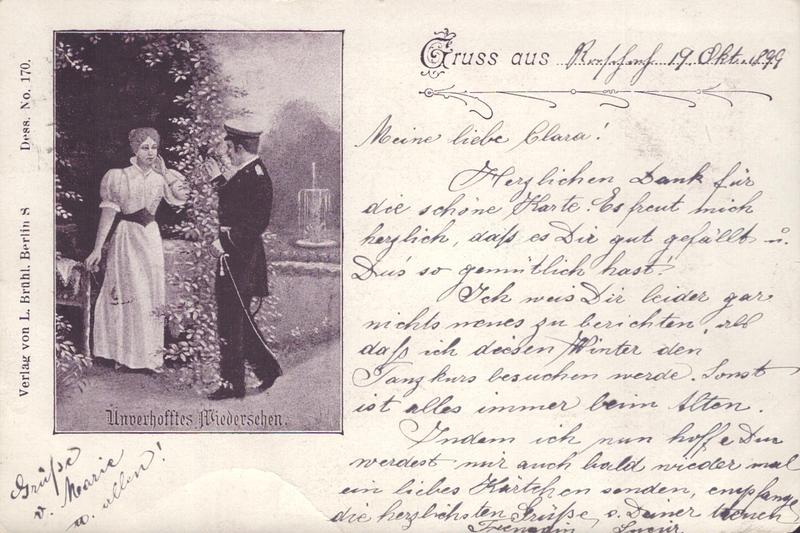 Verlag von L. Brühl, Berlin S Dess. No. 170.
Gruss aus 19. Okt. 1899
Meine liebe Clara!
Herzlichen Dank für
die schöne Karte. Es freut mich
herzlich, daß es Dir gut gefällt u.
Du's so gemütlich hast!
Ich weis Dir leider gar
nichts neues zu berichten, als
daß ich diesen Winter den
Tanzkurs besuchen werde. Sonst
ist alles immer beim Alten.
Indem ich nun hoffe Du
werdest mir auch bald wieder mal
ein liebes Kärtchen senden, empfange
die herzlichsten Grüße v. Deiner treuen
Freundin
Unverhofftes Wiedersehen.
Grüße
v. Marie
u. allen!